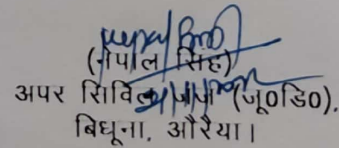 (नेपाल सिंह)
अपर सिविल जज (जू0डि0),
बिधूना, औरैया।